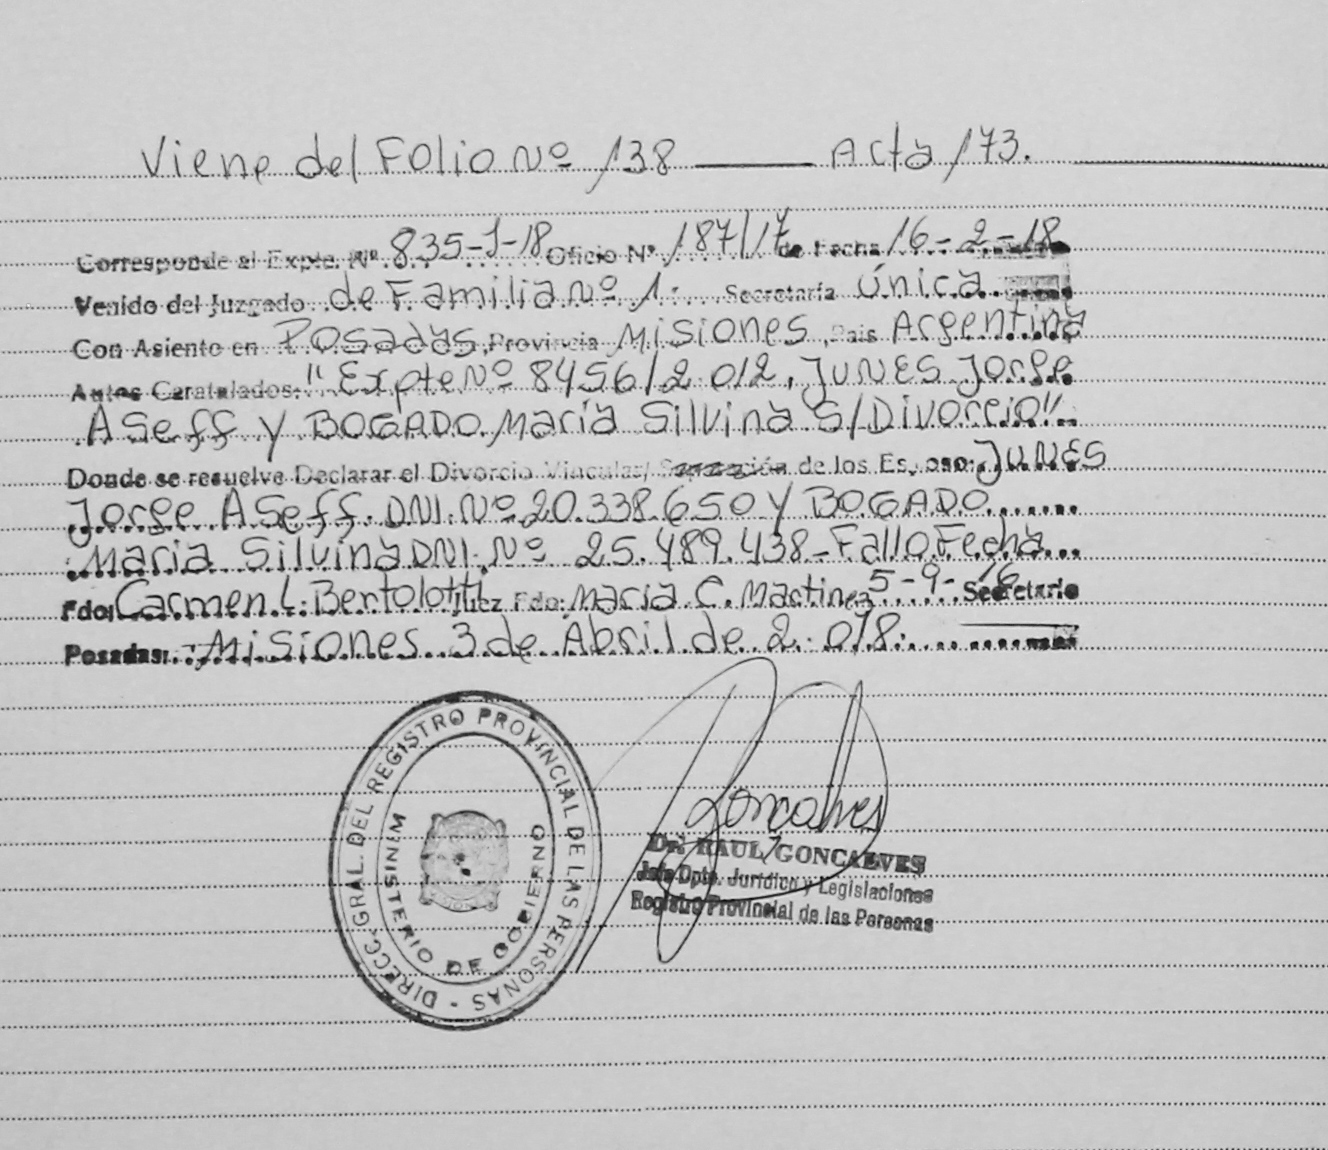 Viene del Folio Nº 138 Acta 173.
Corresponde al Expte. Nº 835-J-18 Oficio Nº 187/17 de Fecha 16-2-18
Venido del Juzgado de Familia nº 1. Secretaría única
Con Asiento en Posadas, Provincia Misiones, Pais Argentina
Autos Caratulados: "Expte Nº 8456/2.012, JUNES Jorge
ASeff Y BOGADO Maria Silvina S/Divorcio"
Donde se resuelve Declarar el Divorcio Vincular/ Separación de los Esposo: JUNES
Jorge ASeff. DNI. Nº 20.338.650 Y BOGADO
Maria Silvina DNI. Nº 25.489.438-Fallo Fecha
Fdo: Carmen L. Bertolotti Juez Fdo: Maria C. Martinez 5-9-16 Secretario
Posadas: Misiones 3 de Abril de 2.018.
DIRECC. GRAL. DEL REGISTRO PROVINCIAL DE LAS PERSONAS -
MINISTERIO DE GOBIERNO
Goncalves
Dr. RAUL GONCALVES
Jefe Dpto. Jurídico y Legislaciones
Registro Provincial de las Personas